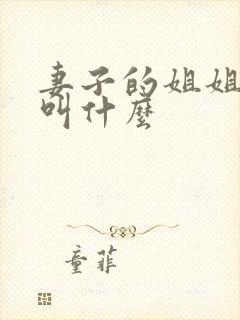 妻子的姐姐
叫什麽
童菲